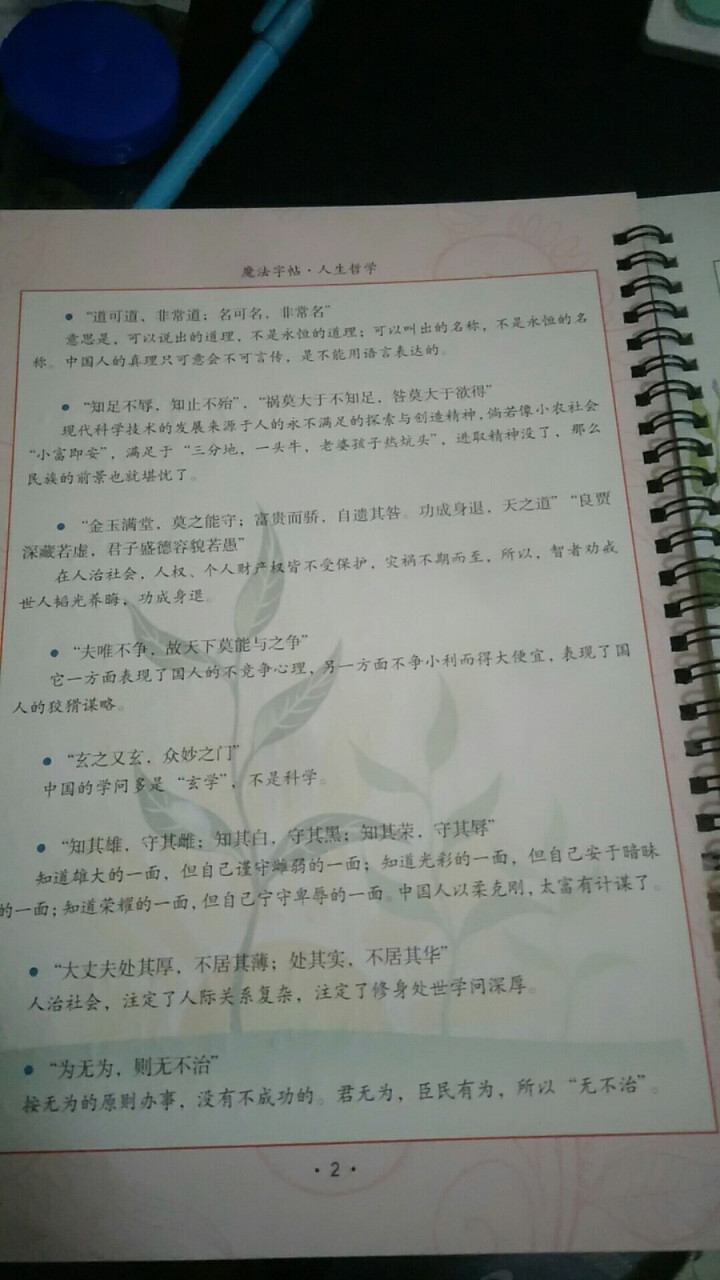 魔法字帖·人生哲学
● “道可道，非常道；名可名，非常名”
意思是，可以说出的道理，不是永恒的道理；可以叫出的名称，不是永恒的名
称。中国人的真理只可意会不可言传，是不能用语言表达的。
● “知足不辱，知止不殆”，“祸莫大于不知足，咎莫大于欲得”
现代科学技术的发展来源于人的永不满足的探索与创造精神，倘若像小农社会
“小富即安”，满足于“三分地，一头牛，老婆孩子热炕头”，进取精神没了，那么
民族的前景也就堪忧了。
● “金玉满堂，莫之能守；富贵而骄，自遗其咎。功成身退，天之道”“良贾
深藏若虚，君子盛德容貌若愚”
在人治社会，人权、个人财产权皆不受保护，灾祸不期而至，所以，智者劝戒
世人韬光养晦，功成身退。
● “夫唯不争，故天下莫能与之争”
它一方面表现了国人的不竞争心理，另一方面不争小利而得大便宜，表现了国
人的狡猾谋略。
● “玄之又玄，众妙之门”
中国的学问多是“玄学”，不是科学。
● “知其雄，守其雌；知其白，守其黑；知其荣，守其辱”
知道雄大的一面，但自己谨守雌弱的一面；知道光彩的一面，但自己安于暗昧
的一面；知道荣耀的一面，但自己宁守卑辱的一面。中国人以柔克刚，太富有计谋了。
● “大丈夫处其厚，不居其薄；处其实，不居其华”
人治社会，注定了人际关系复杂，注定了修身处世学问深厚。
● “为无为，则无不治”
按无为的原则办事，没有不成功的。君无为，臣民有为，所以“无不治”。
·2·